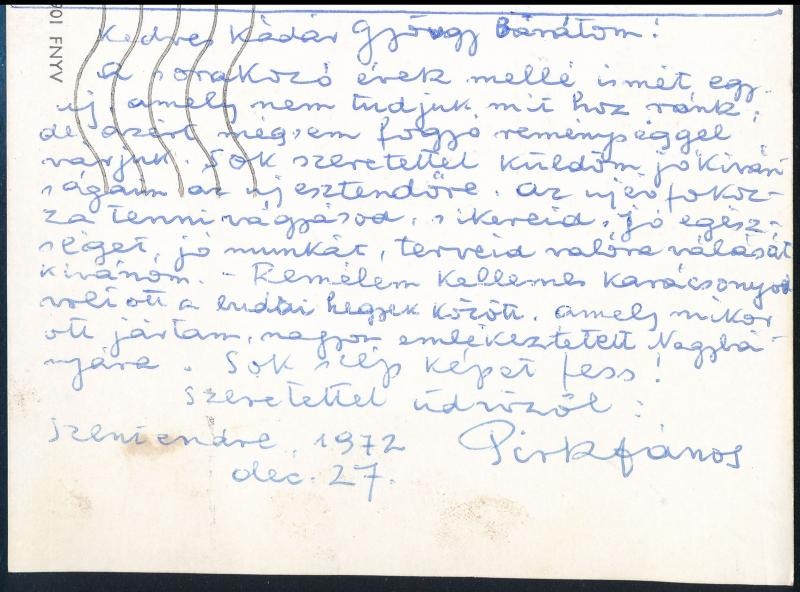 Kedves Kádár György Barátom!
A sorakozó évek mellé ismét egy
uj, amely nem tudjuk mit hoz ránk,
de azért mégsem fogyó reménységgel
várjuk. Sok szeretettel küldöm jókiván-
ságaim az uj esztendőre. Az ujév fokoz-
za tenni vágyásod, sikereid, jó egész-
séget, jó munkát, terveid valóra válását
kivánom. - Remélem kellemes karácsonyod
volt ott a budai hegyek között, amely mikor
ott jártam, nagyon emlékeztetett Nagybá-
nyára. Sok szép képet fess!
Szeretettel üdvözöl:
Szentendre, 1972 Pirk János
dec. 27.
901 FNYV